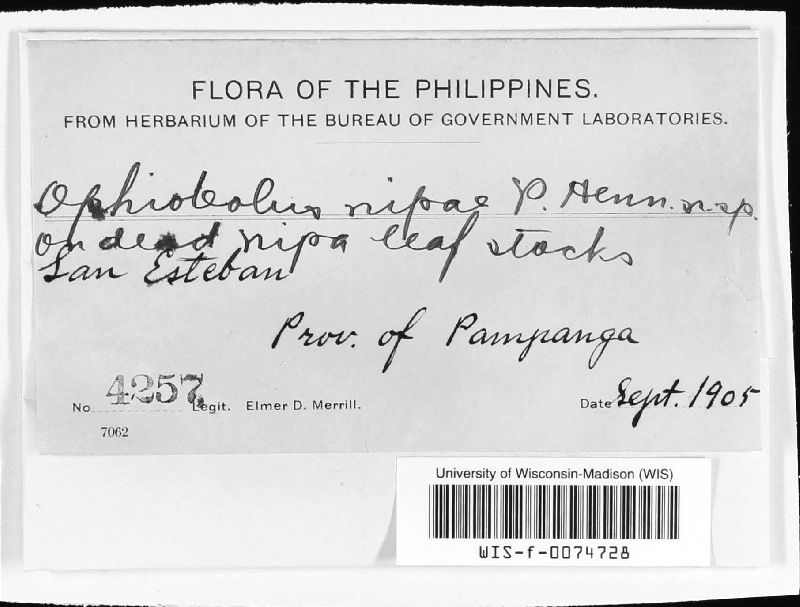 FLORA OF THE PHILIPPINES.
FROM HERBARIUM OF THE BUREAU OF GOVERNMENT LABORATORIES.
Ophiobolus nipae P. Henn. n. sp.
on dead nipa leaf stocks
San Esteban
Prov. of Pampanga
No. 4257 Legit. Elmer D. Merrill. Date Sept. 1905
7062
University of Wisconsin-Madison (WIS)
WIS-f-0074728